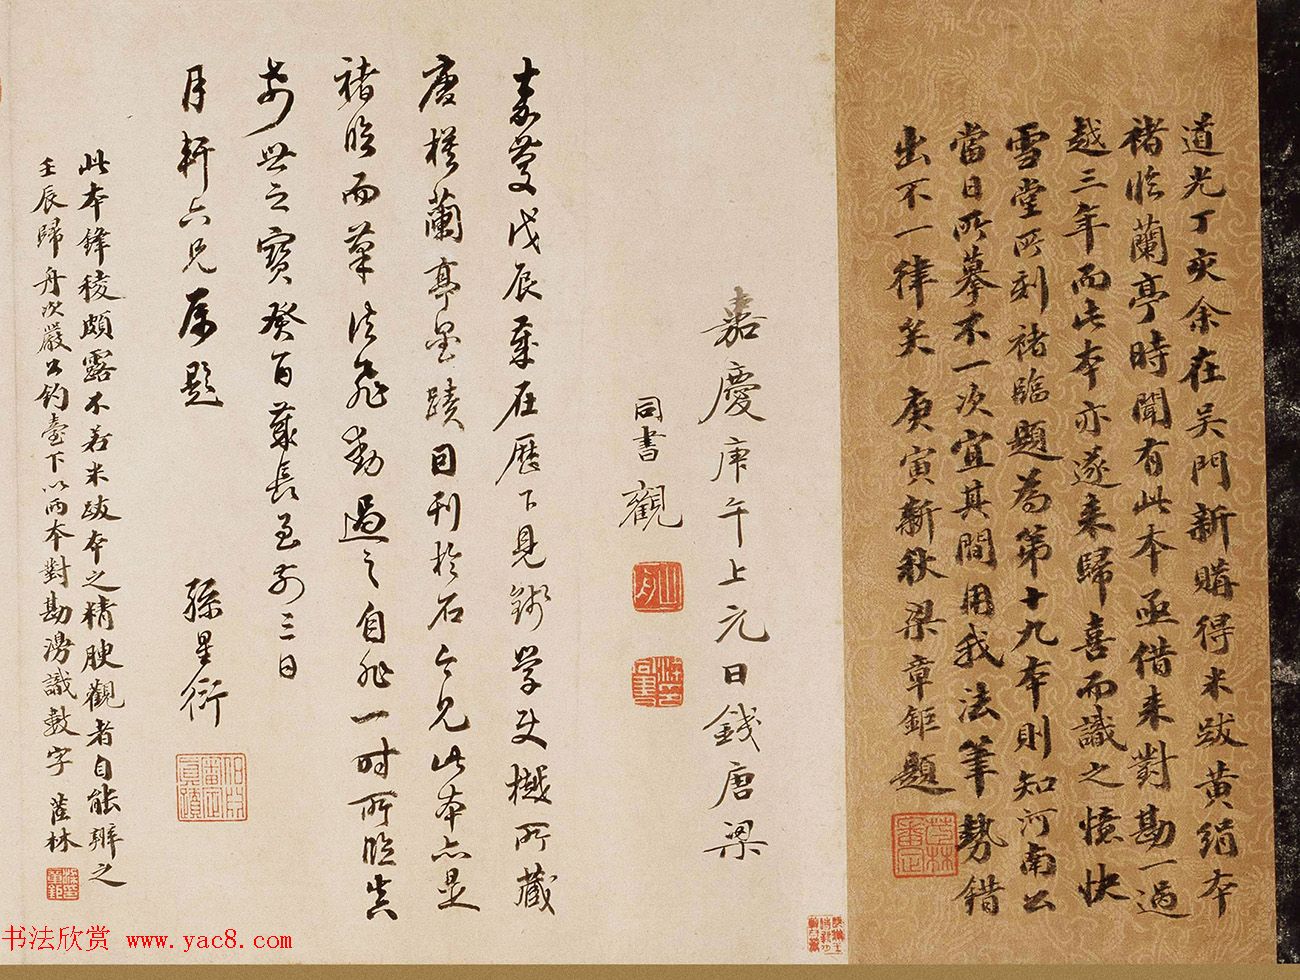 道光丁亥余在吴門新購得米跋黃絹本
褚臨蘭亭時聞有此本亟借来對勘一過
越三年而此本亦遂来歸喜而識之憶快
雪堂所刻褚臨題為第十九本則知河南公
當日所摹不一次宜其間用我法筆勢錯
出不一律矣 庚寅新秋梁章鉅題
嘉慶庚午上元日錢唐梁
同書觀
嘉慶戊辰歲在歷下見衍聖 学使樾所藏
唐摸蘭亭墨蹟因刊於石今見此本亦是
褚臨而筆法飛動過之自非一时所臨真
希世之寶癸酉歲長至前三日
月軒六兄属題
孫星衍
此本鋒稜頗露不若米跋本之精腴觀者自能辨之
壬辰歸舟次嚴公釣臺下以兩本對勘漫識數字 茝林
书法欣赏 www.yac8.com